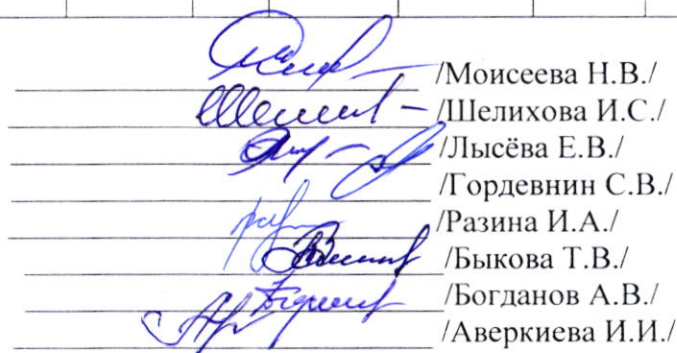 /Моисеева Н.В./
/Шелихова И.С./
/Лысёва Е.В./
/Гордевнин С.В./
/Разина И.А./
/Быкова Т.В./
/Богданов А.В./
/Аверкиева И.И./